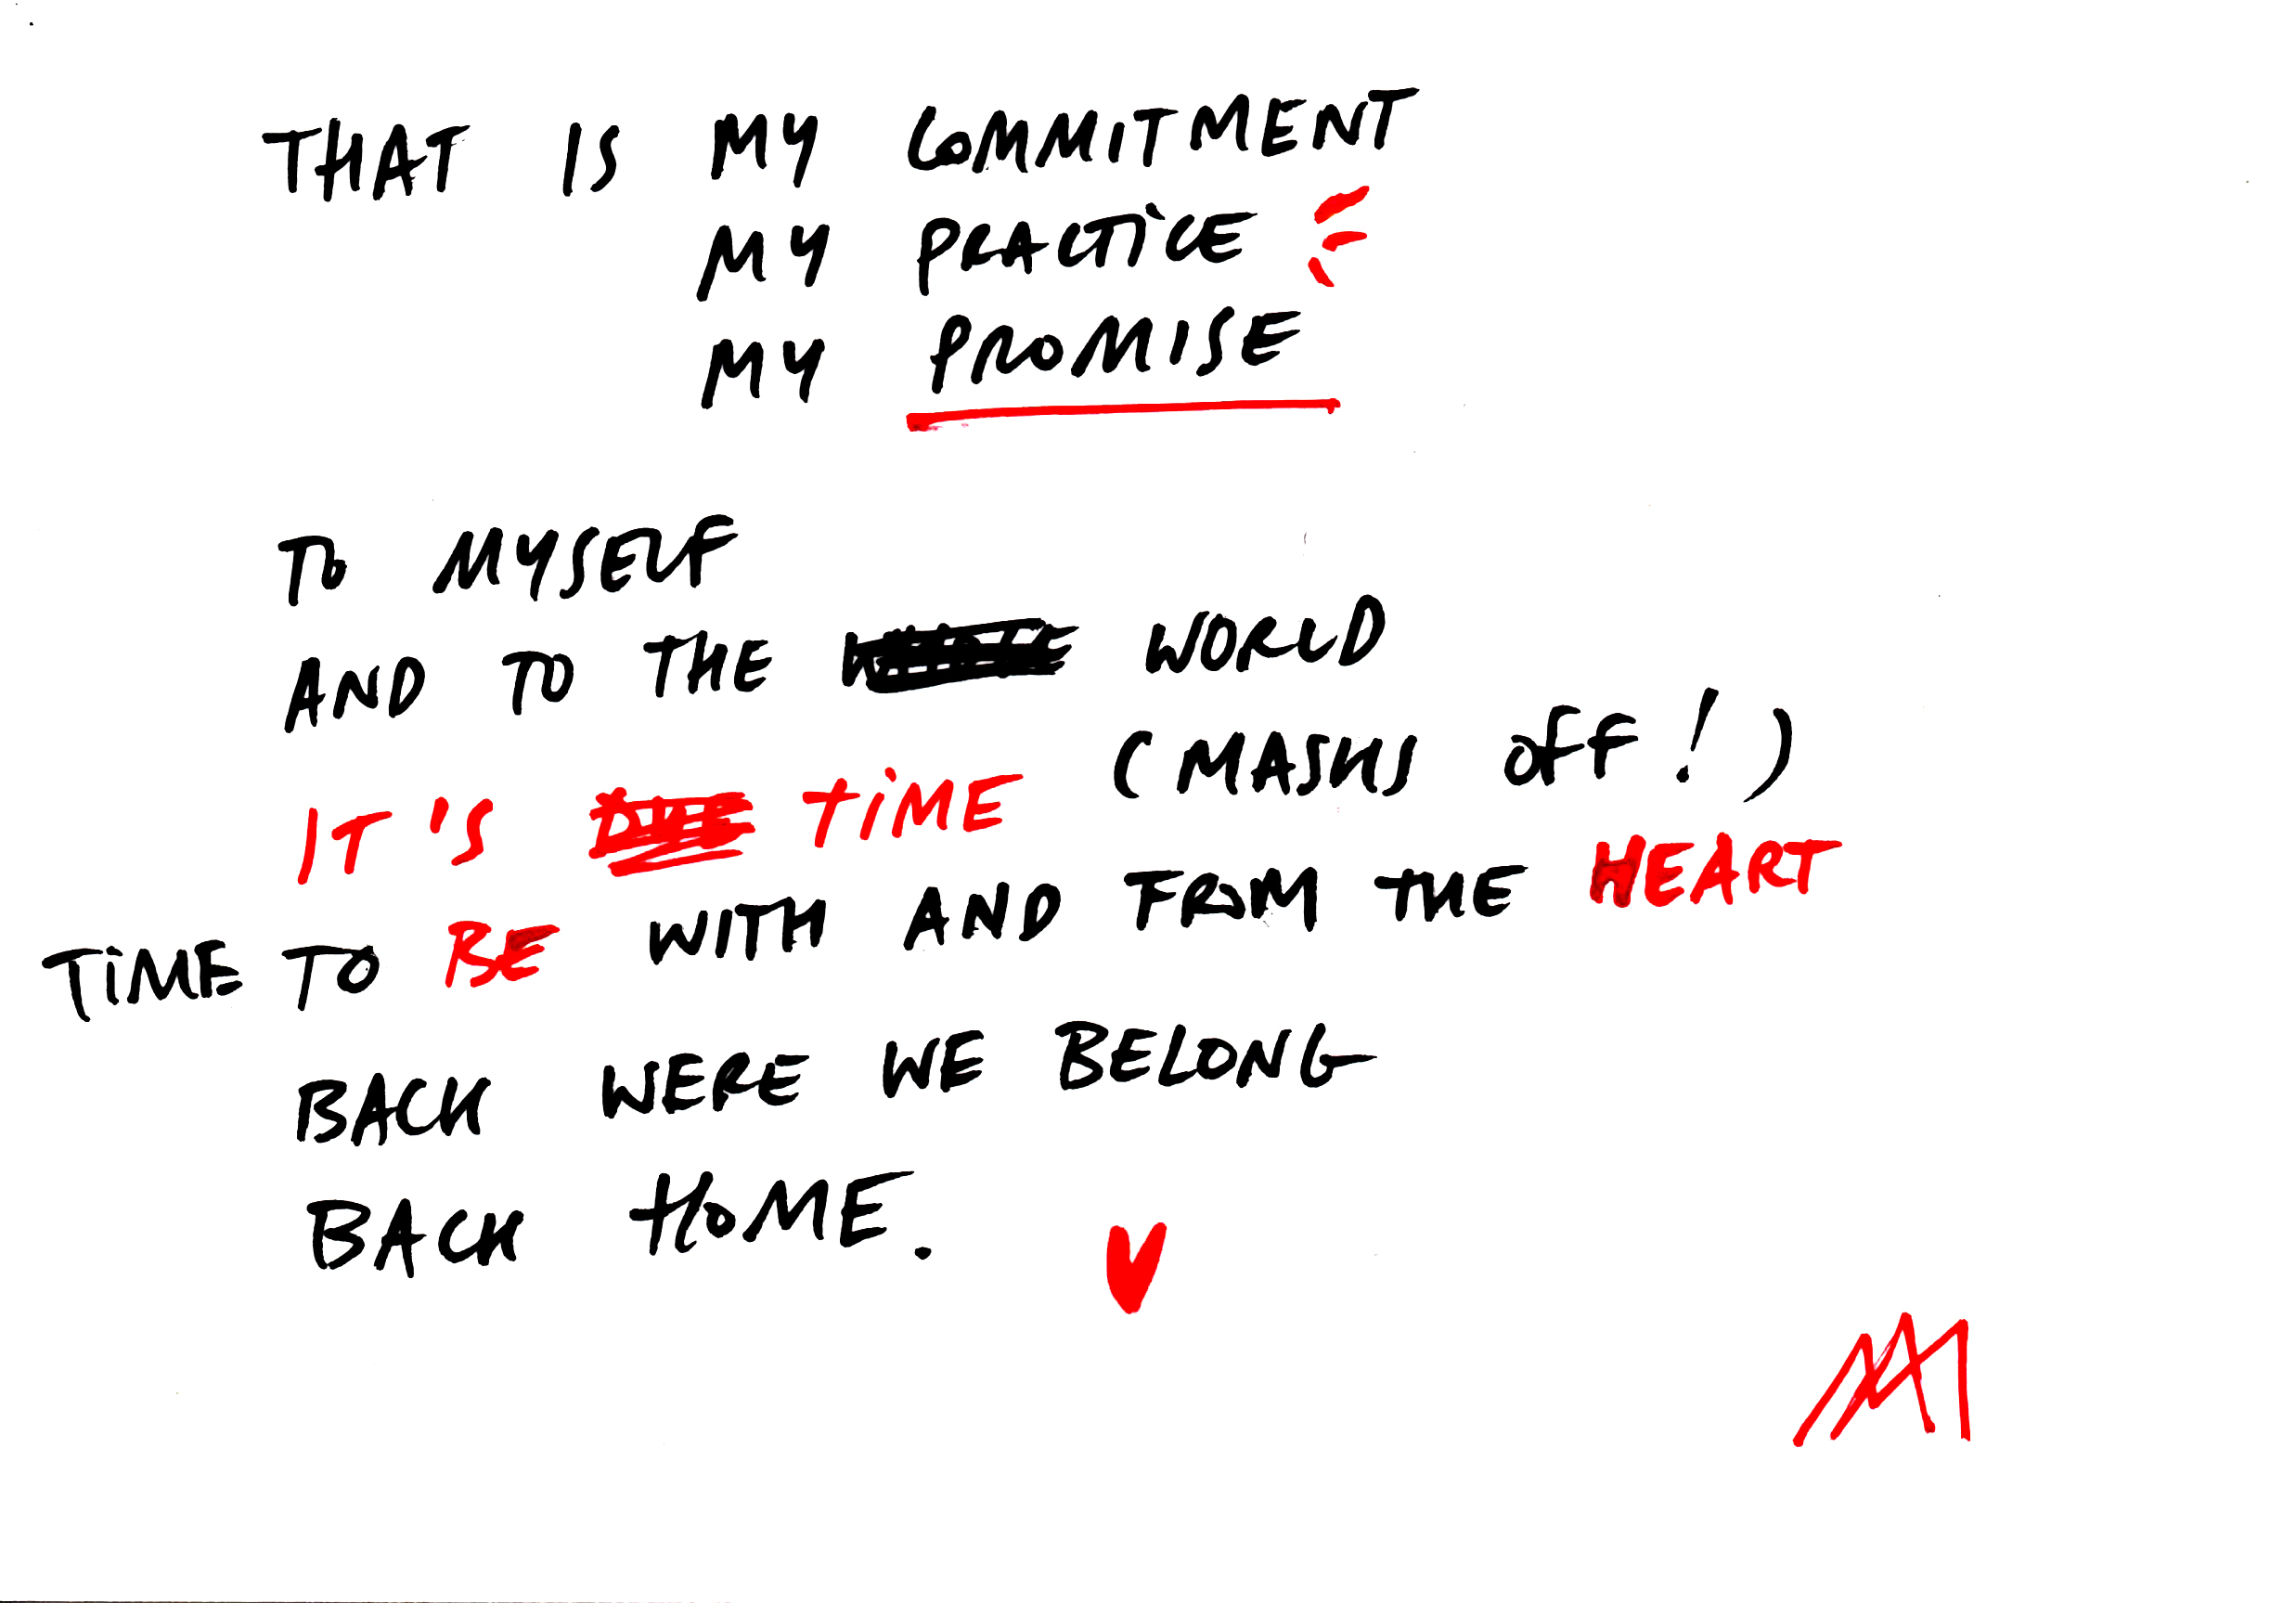 THAT IS MY COMMITMENT
MY PRACTICE
MY PROMISE
TO MYSELF
AND TO THE WORLD
(MASKS OFF!)
IT'S TIME
TIME TO BE WITH AND FROM THE HEART
BACK WERE WE BELONG
BACK HOME.